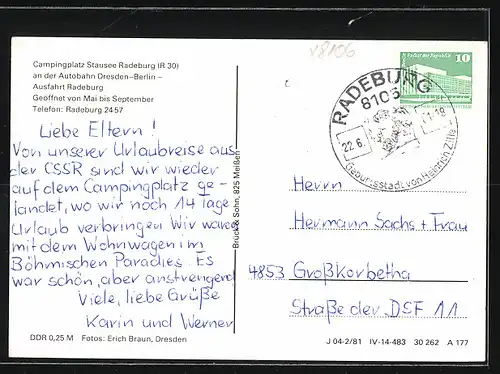 Campingplatz Stausee Radeburg (R 30)
an der Autobahn Dresden–Berlin –
Ausfahrt Radeburg
Geöffnet von Mai bis September
Telefon: Radeburg 24 57
Liebe Eltern!
Von unserer Urlaubsreise aus
der CSSR sind wir wieder
auf dem Campingplatz ge-
landet, wo wir noch 14 Tage
Urlaub verbringen. Wir waren
mit dem Wohnwagen im
Böhmischen Paradies. Es
war schön, aber anstrengend
Viele, liebe Grüße
Karin und Werner
DDR 0,25 M Fotos: Erich Braun, Dresden
Brück & Sohn, 825 Meißen
V8106
10
RADEBURG
8106
22.6.
Geburtsstadt von Heinrich Zille
Herrn
Hermann Sachs + Frau
4853 Großkorbetha
Straße der DSF 11
J 04-2/81 IV-14-483 30 262 A 177